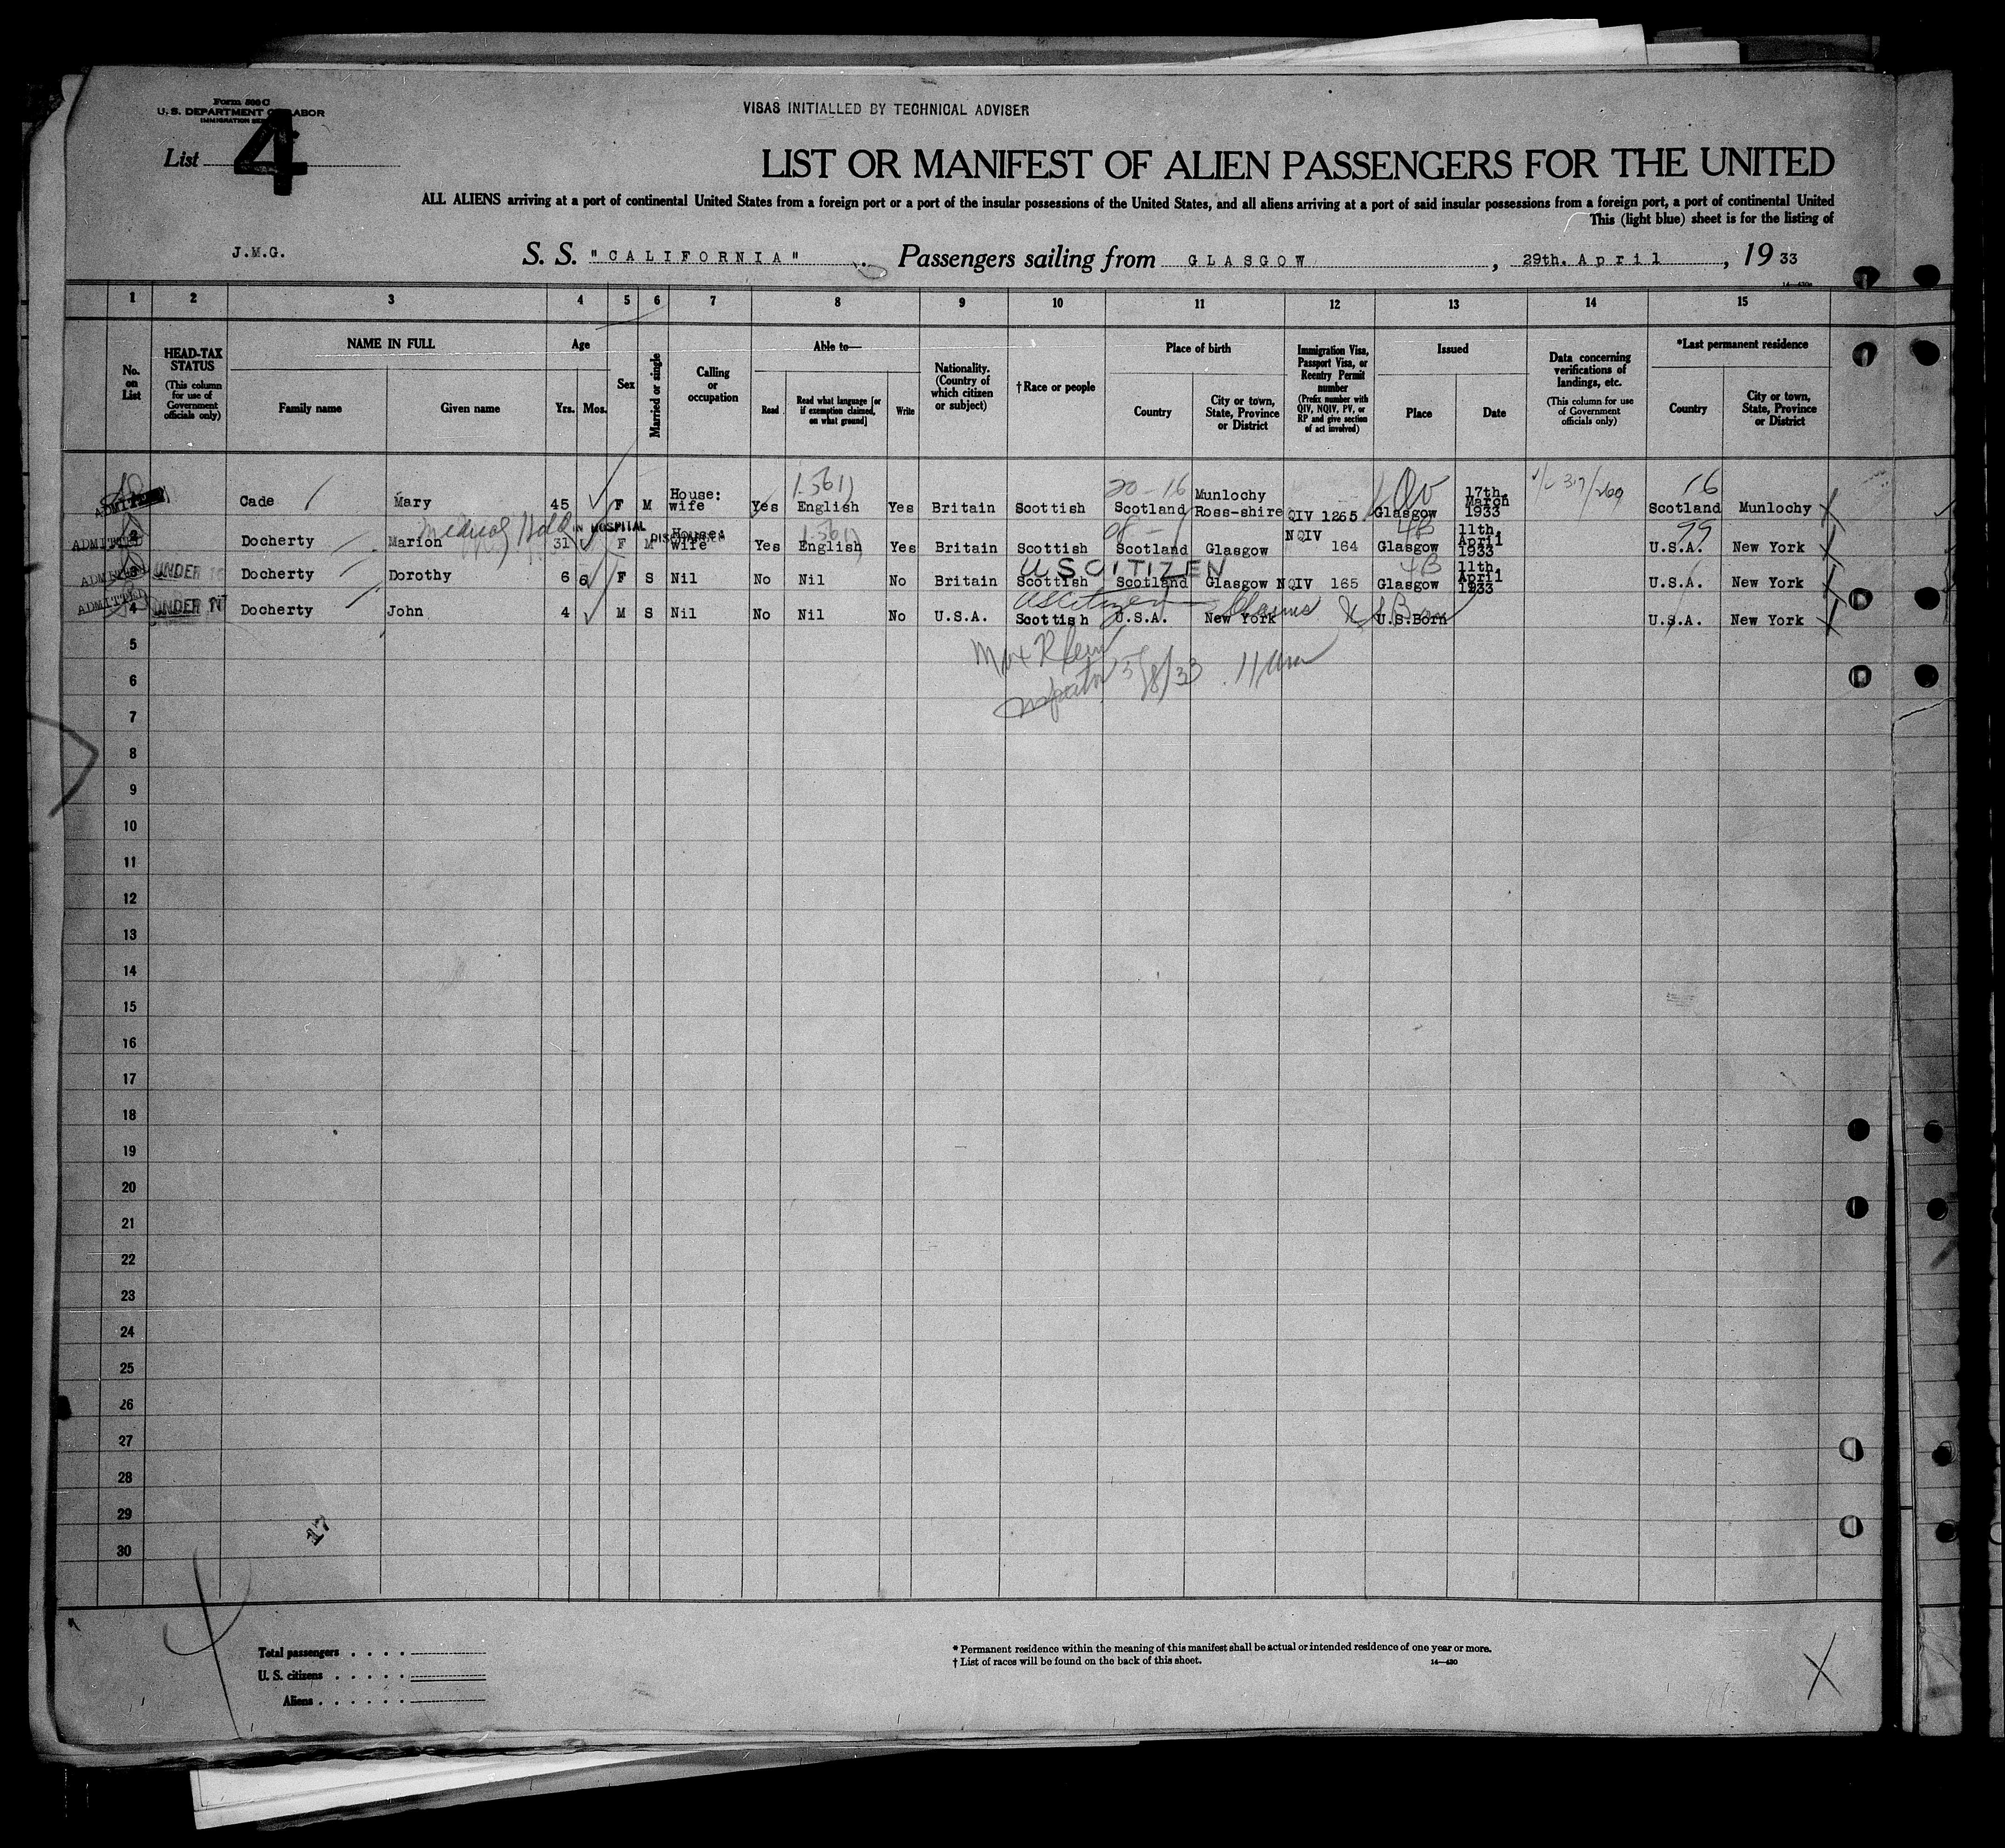 Form 500 C
U. S. DEPARTMENT OF LABOR
IMMIGRATION
VISAS INITIALLED BY TECHNICAL ADVISER
List 4
LIST OR MANIFEST OF ALIEN PASSENGERS FOR THE UNITED
ALL ALIENS arriving at a port of continental United States from a foreign port or a port of the insular possessions of the United States, and all aliens arriving at a port of said insular possessions from a foreign port, a port of continental United
This (light blue) sheet is for the listing of
J.M.G. S. S. "CALIFORNIA" Passengers sailing from GLASGOW, 29th. April, 1933
1 2 3 4 5 6 7 8 9 10 11 12 13 14 15
No. on List
HEAD-TAX STATUS (This column for use of Government officials only)
NAME IN FULL Family name Given name
Age Yrs. Mos.
Sex
Married or single
Calling or occupation
Able to— Read Read what language [or if exemption claimed, on what ground] Write
Nationality. (Country of which citizen or subject)
†Race or people
Place of birth Country City or town, State, Province or District
Immigration Visa, Passport Visa, or Reentry Permit number (Prefix number with QIV, NQIV, PV, or RP and give section of act involved)
Issued Place Date
Data concerning verifications of landings, etc. (This column for use of Government officials only)
*Last permanent residence Country City or town, State, Province or District
ADMITTED Cade Mary 45 F M House: wife Yes English Yes Britain Scottish 20-16 Scotland Munlochy Ross-shire QIV 1265 Glasgow 17th. March 1933 16 Scotland Munlochy
Medical Hold IN HOSPITAL DISCHARGED
ADMITTED 2 Docherty Marion 31 F M House: wife Yes English Yes Britain Scottish Scotland Glasgow NQIV 164 4B Glasgow 11th. April 1933 99 U.S.A. New York
US CITIZEN
ADMITTED 3 UNDER 16 Docherty Dorothy 6 6 F S Nil No Nil No Britain Scottish Scotland Glasgow NQIV 165 4B Glasgow 11th. April 1933 U.S.A. New York
US Citizen Claims
ADMITTED 4 UNDER Docherty John 4 M S Nil No Nil No U.S.A. Scottish U.S.A. New York U.S.Born U.S.A. New York
5
Inspector 5/8/33 11 am
6
7
8
9
10
11
12
13
14
15
16
17
18
19
20
21
22
23
24
25
26
27
28
29
17
30
Total passengers . . . .
U. S. citizens . . . . .
Aliens . . . . . .
* Permanent residence within the meaning of this manifest shall be actual or intended residence of one year or more.
† List of races will be found on the back of this sheet. 14—430